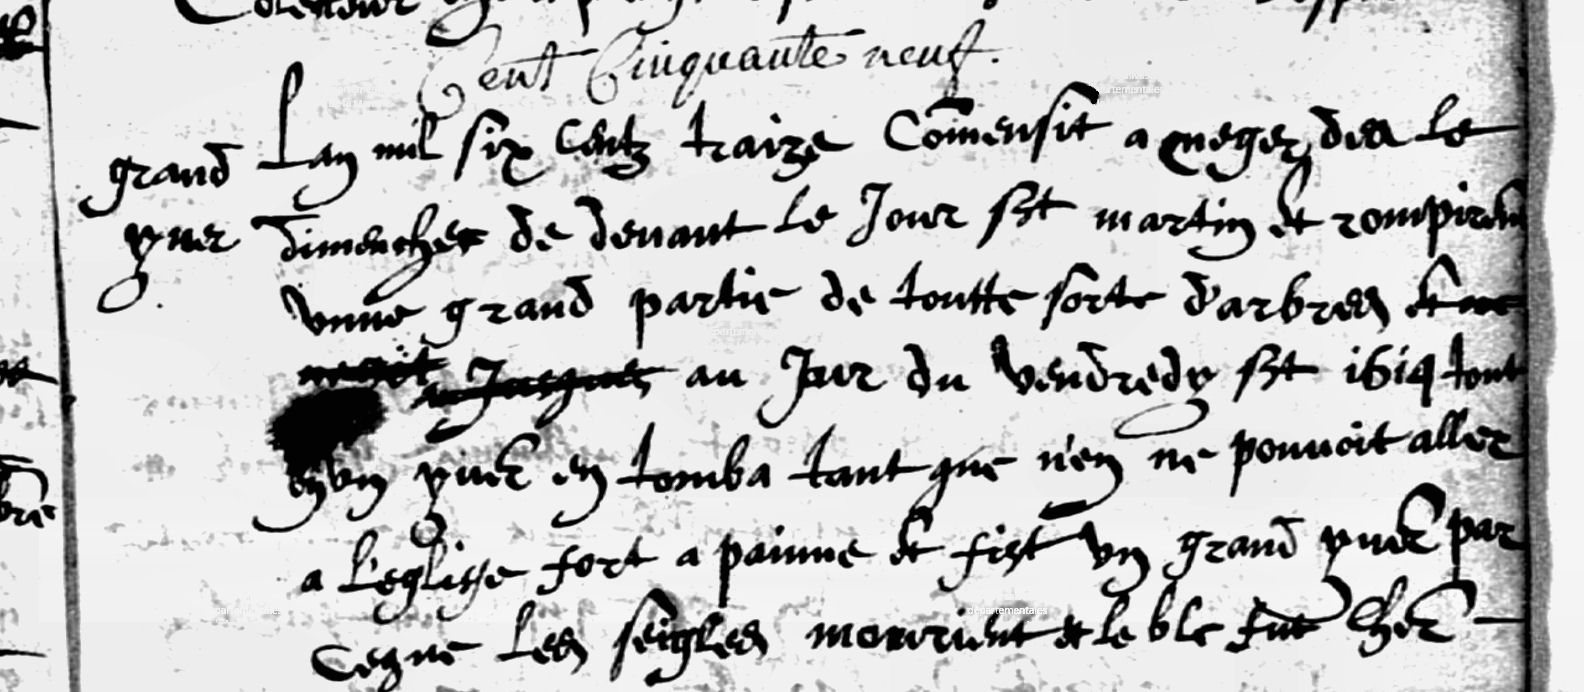 Cent Cinquante neuf.
grand
yver
Lan mil six centz traize Comensit a neger des le
dimenches de devant le Jour sst martin et rompirent
vnne grand partie de toutte sorte d'arbres et ne
au Jour du Vendredy sst 1614 tout
vn yver en tomba tant que n'en ne pouvoit aller
a L'eglise fort a painne et fist vn grand yver par
Ceque Les seigles mourrient et le ble fut Cher